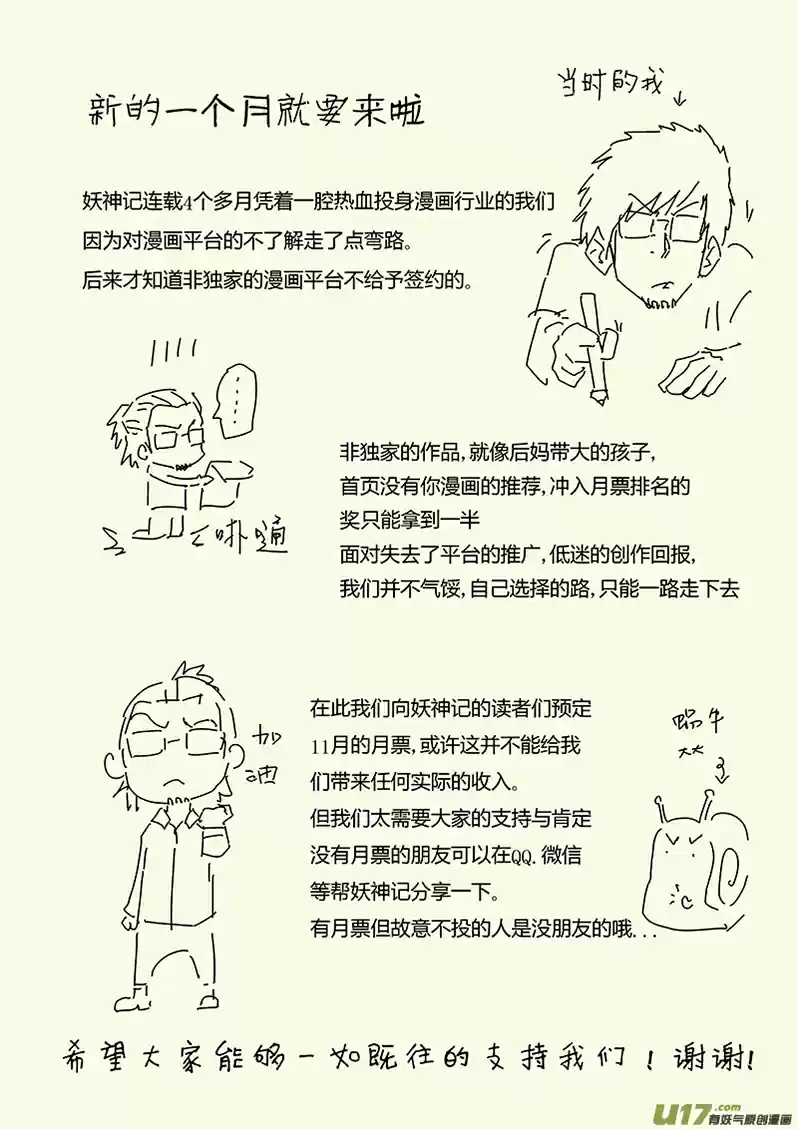 当时的我
新的一个月就要来啦
妖神记连载4个多月凭着一腔热血投身漫画行业的我们
因为对漫画平台的不了解走了点弯路。
后来才知道非独家的漫画平台不给予签约的。
非独家的作品,就像后妈带大的孩子,
首页没有你漫画的推荐,冲入月票排名的
奖只能拿到一半
面对失去了平台的推广,低迷的创作回报,
我们并不气馁,自己选择的路,只能一路走下去
在此我们向妖神记的读者们预定
11月的月票,或许这并不能给我
们带来任何实际的收入。
但我们太需要大家的支持与肯定
没有月票的朋友可以在QQ.微信
等帮妖神记分享一下。
有月票但故意不投的人是没朋友的哦...
加
油
蜗牛
希望大家能够一如既往的支持我们!谢谢!
U17.com
有妖气原创漫画